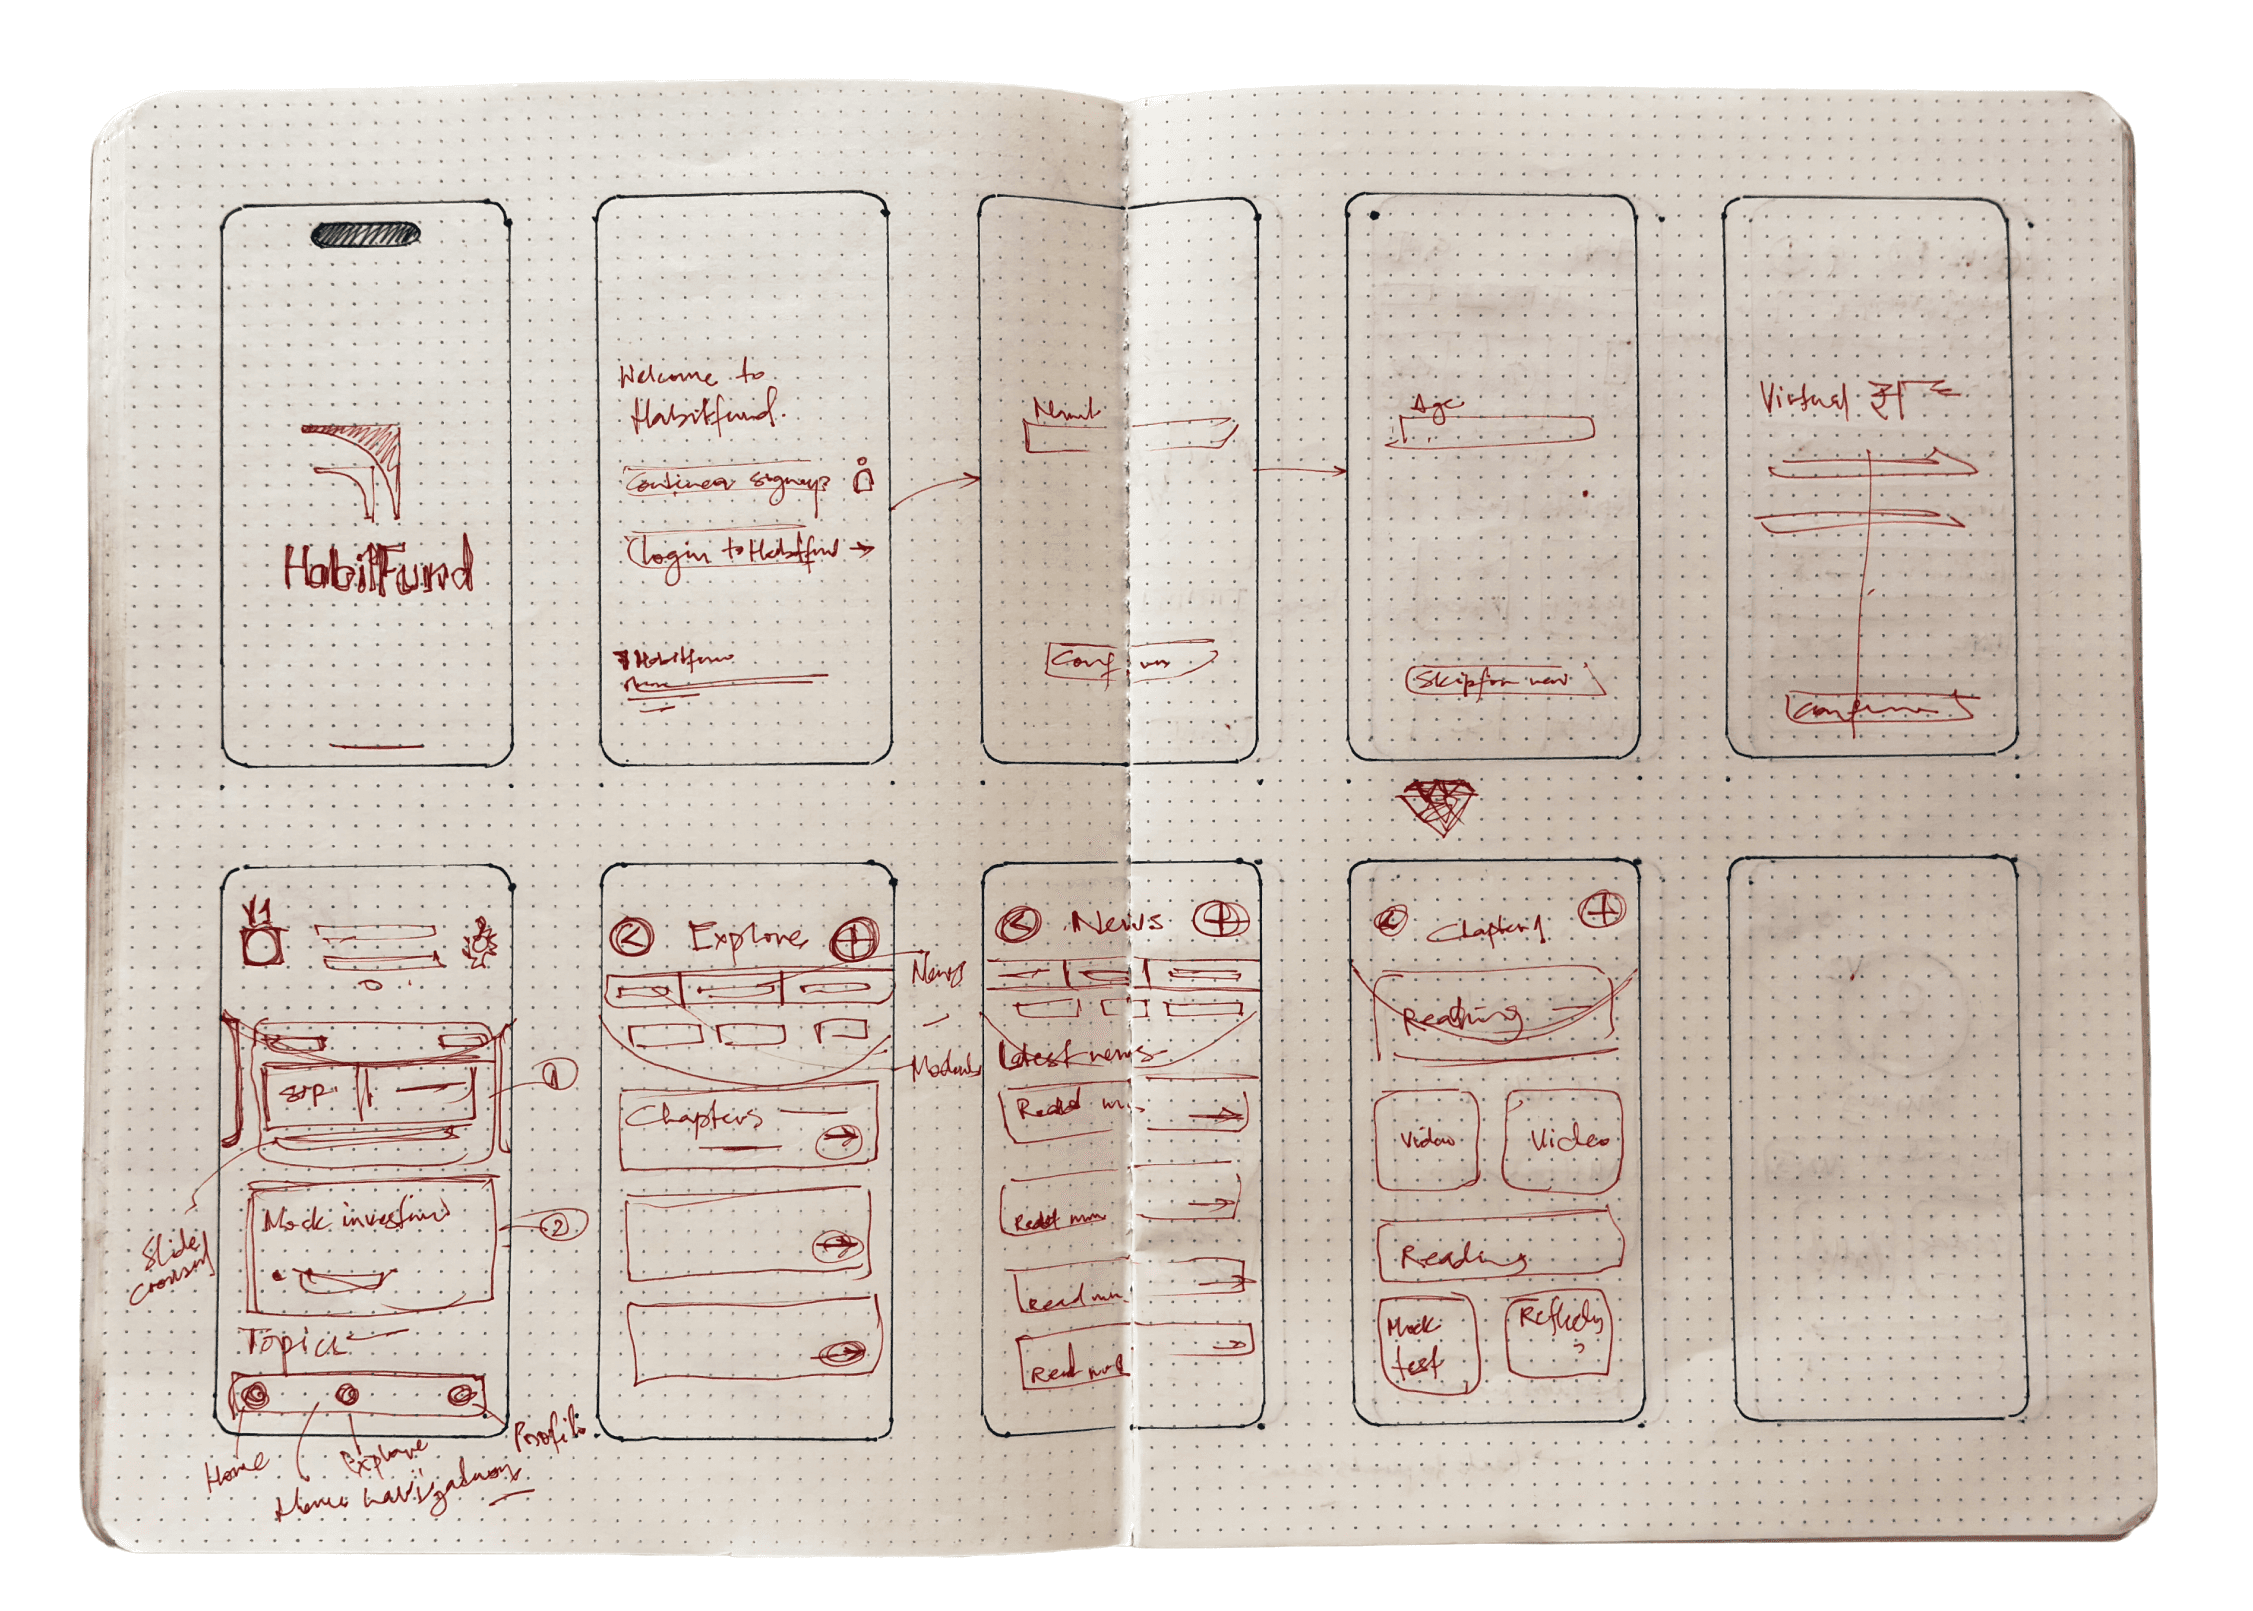 HabitFund
Welcome to
Habitfund.
Continue signup
Login to Habitfund →
Habitfund
Confirm
Age
Skip for now
Virtual
Confirm
V1
SIP
1
Mock investing
2
Slide
carousel
Topics
Home
Explore
Profile
Menu navigations
< Explore +
News
Modules
Chapters
→
→
→
< News +
Latest news
Read →
Read →
Read →
Read →
< Chapter 1 +
Reading
Video
Video
Reading
Mock
test